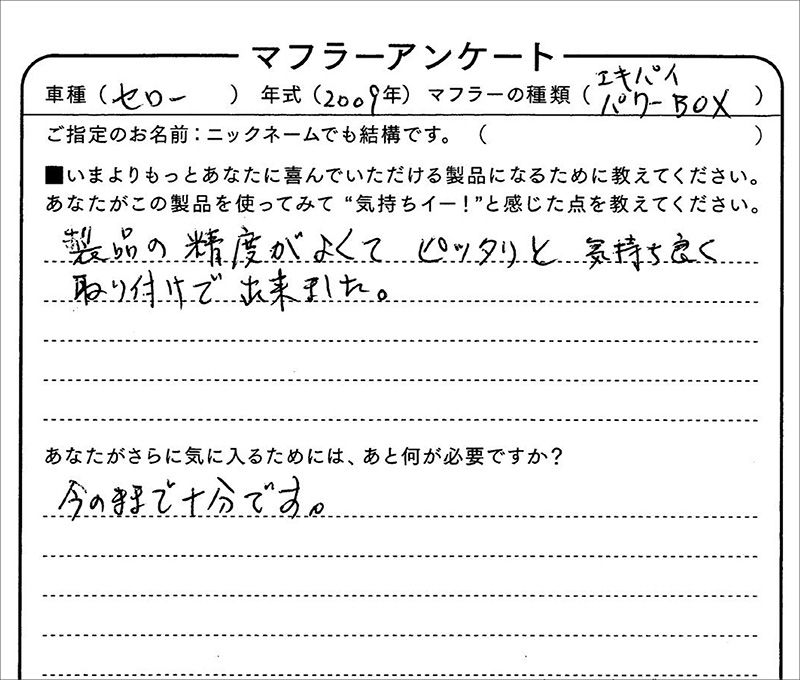 マフラーアンケート
車種（セロー　）　年式（2009年）　マフラーの種類（エキパイ パワーBOX）
ご指定のお名前：ニックネームでも結構です。（　）
■いまよりもっとあなたに喜んでいただける製品になるために教えてください。
あなたがこの製品を使ってみて“気持ちイー！”と感じた点を教えてください。
製品の精度がよくて ピッタリと 気持ち良く
取り付けで出来ました。
あなたがさらに気に入るためには、あと何が必要ですか？
今のままで十分です。